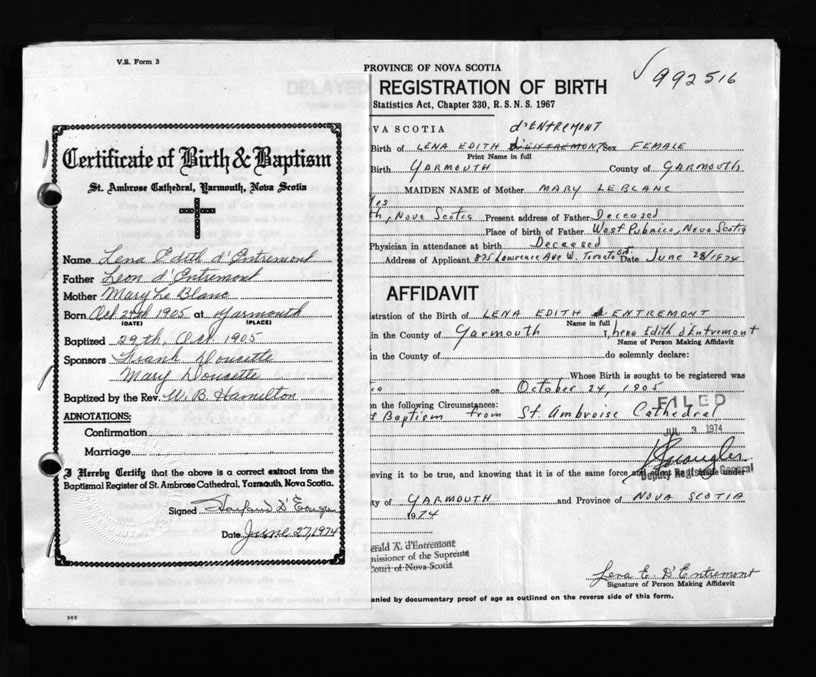 V.S. Form 3
Certificate of Birth & Baptism
St. Ambrose Cathedral, Yarmouth, Nova Scotia
Name Lena Edith d'Entremont
Father Leon d'Entremont
Mother Mary Le Blanc
Born Oct 24th 1905 at Yarmouth
(DATE) (PLACE)
Baptized 29th, Oct. 1905
Sponsors Frank Doucette
Mary Doucette
Baptized by the Rev. W. B. Hamilton
ADNOTATIONS:
Confirmation
Marriage
I Hereby Certify that the above is a correct extract from the
Baptismal Register of St. Ambrose Cathedral, Yarmouth, Nova Scotia.
Signed
Date June 27, 1974
PROVINCE OF NOVA SCOTIA
REGISTRATION OF BIRTH
992516
Statistics Act, Chapter 330, R. S. N. S. 1967
VA SCOTIA d'ENTREMONT
Birth of LENA EDITH d'ENTREMONT Sex FEMALE
Print Name in full
Birth YARMOUTH County of YARMOUTH
MAIDEN NAME of Mother MARY LEBLANC
th, Nova Scotia Present address of Father Deceased
Place of birth of Father West Pubnico, Nova Scotia
Physician in attendance at birth Deceased
Address of Applicant 875 Lawrence Ave W. Toronto Ont Date June 28/1974
AFFIDAVIT
istration of the Birth of LENA EDITH d'ENTREMONT
Name in full
in the County of Yarmouth I, Lena Edith d'Entremont
Name of Person Making Affidavit
in the County of do solemnly declare:
Whose Birth is sought to be registered was
on October 24, 1905
on the following Circumstances: FILED
f Baptism from St. Ambroise Cathedral
JUL 3 1974
eving it to be true, and knowing that it is of the same force and under
Deputy Registrar General
ty of YARMOUTH and Province of NOVA SCOTIA
1974
erald A. d'Entremont
missioner of the Supreme
Court of Nova Scotia
Lena E. D'Entremont
Signature of Person Making Affidavit
anied by documentary proof of age as outlined on the reverse side of this form.